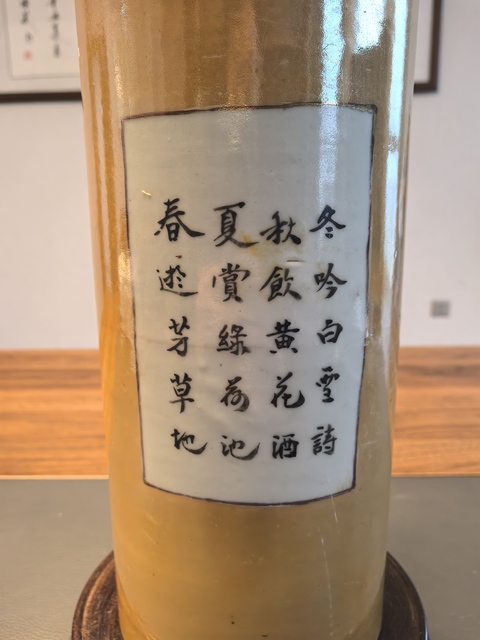 春遊芳草地
夏賞綠荷池
秋飲黄花酒
冬吟白雪詩